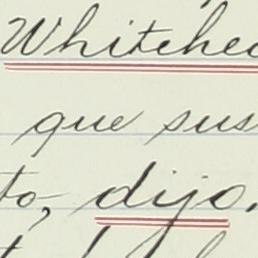 Whitehe
que sus
to, dijo.